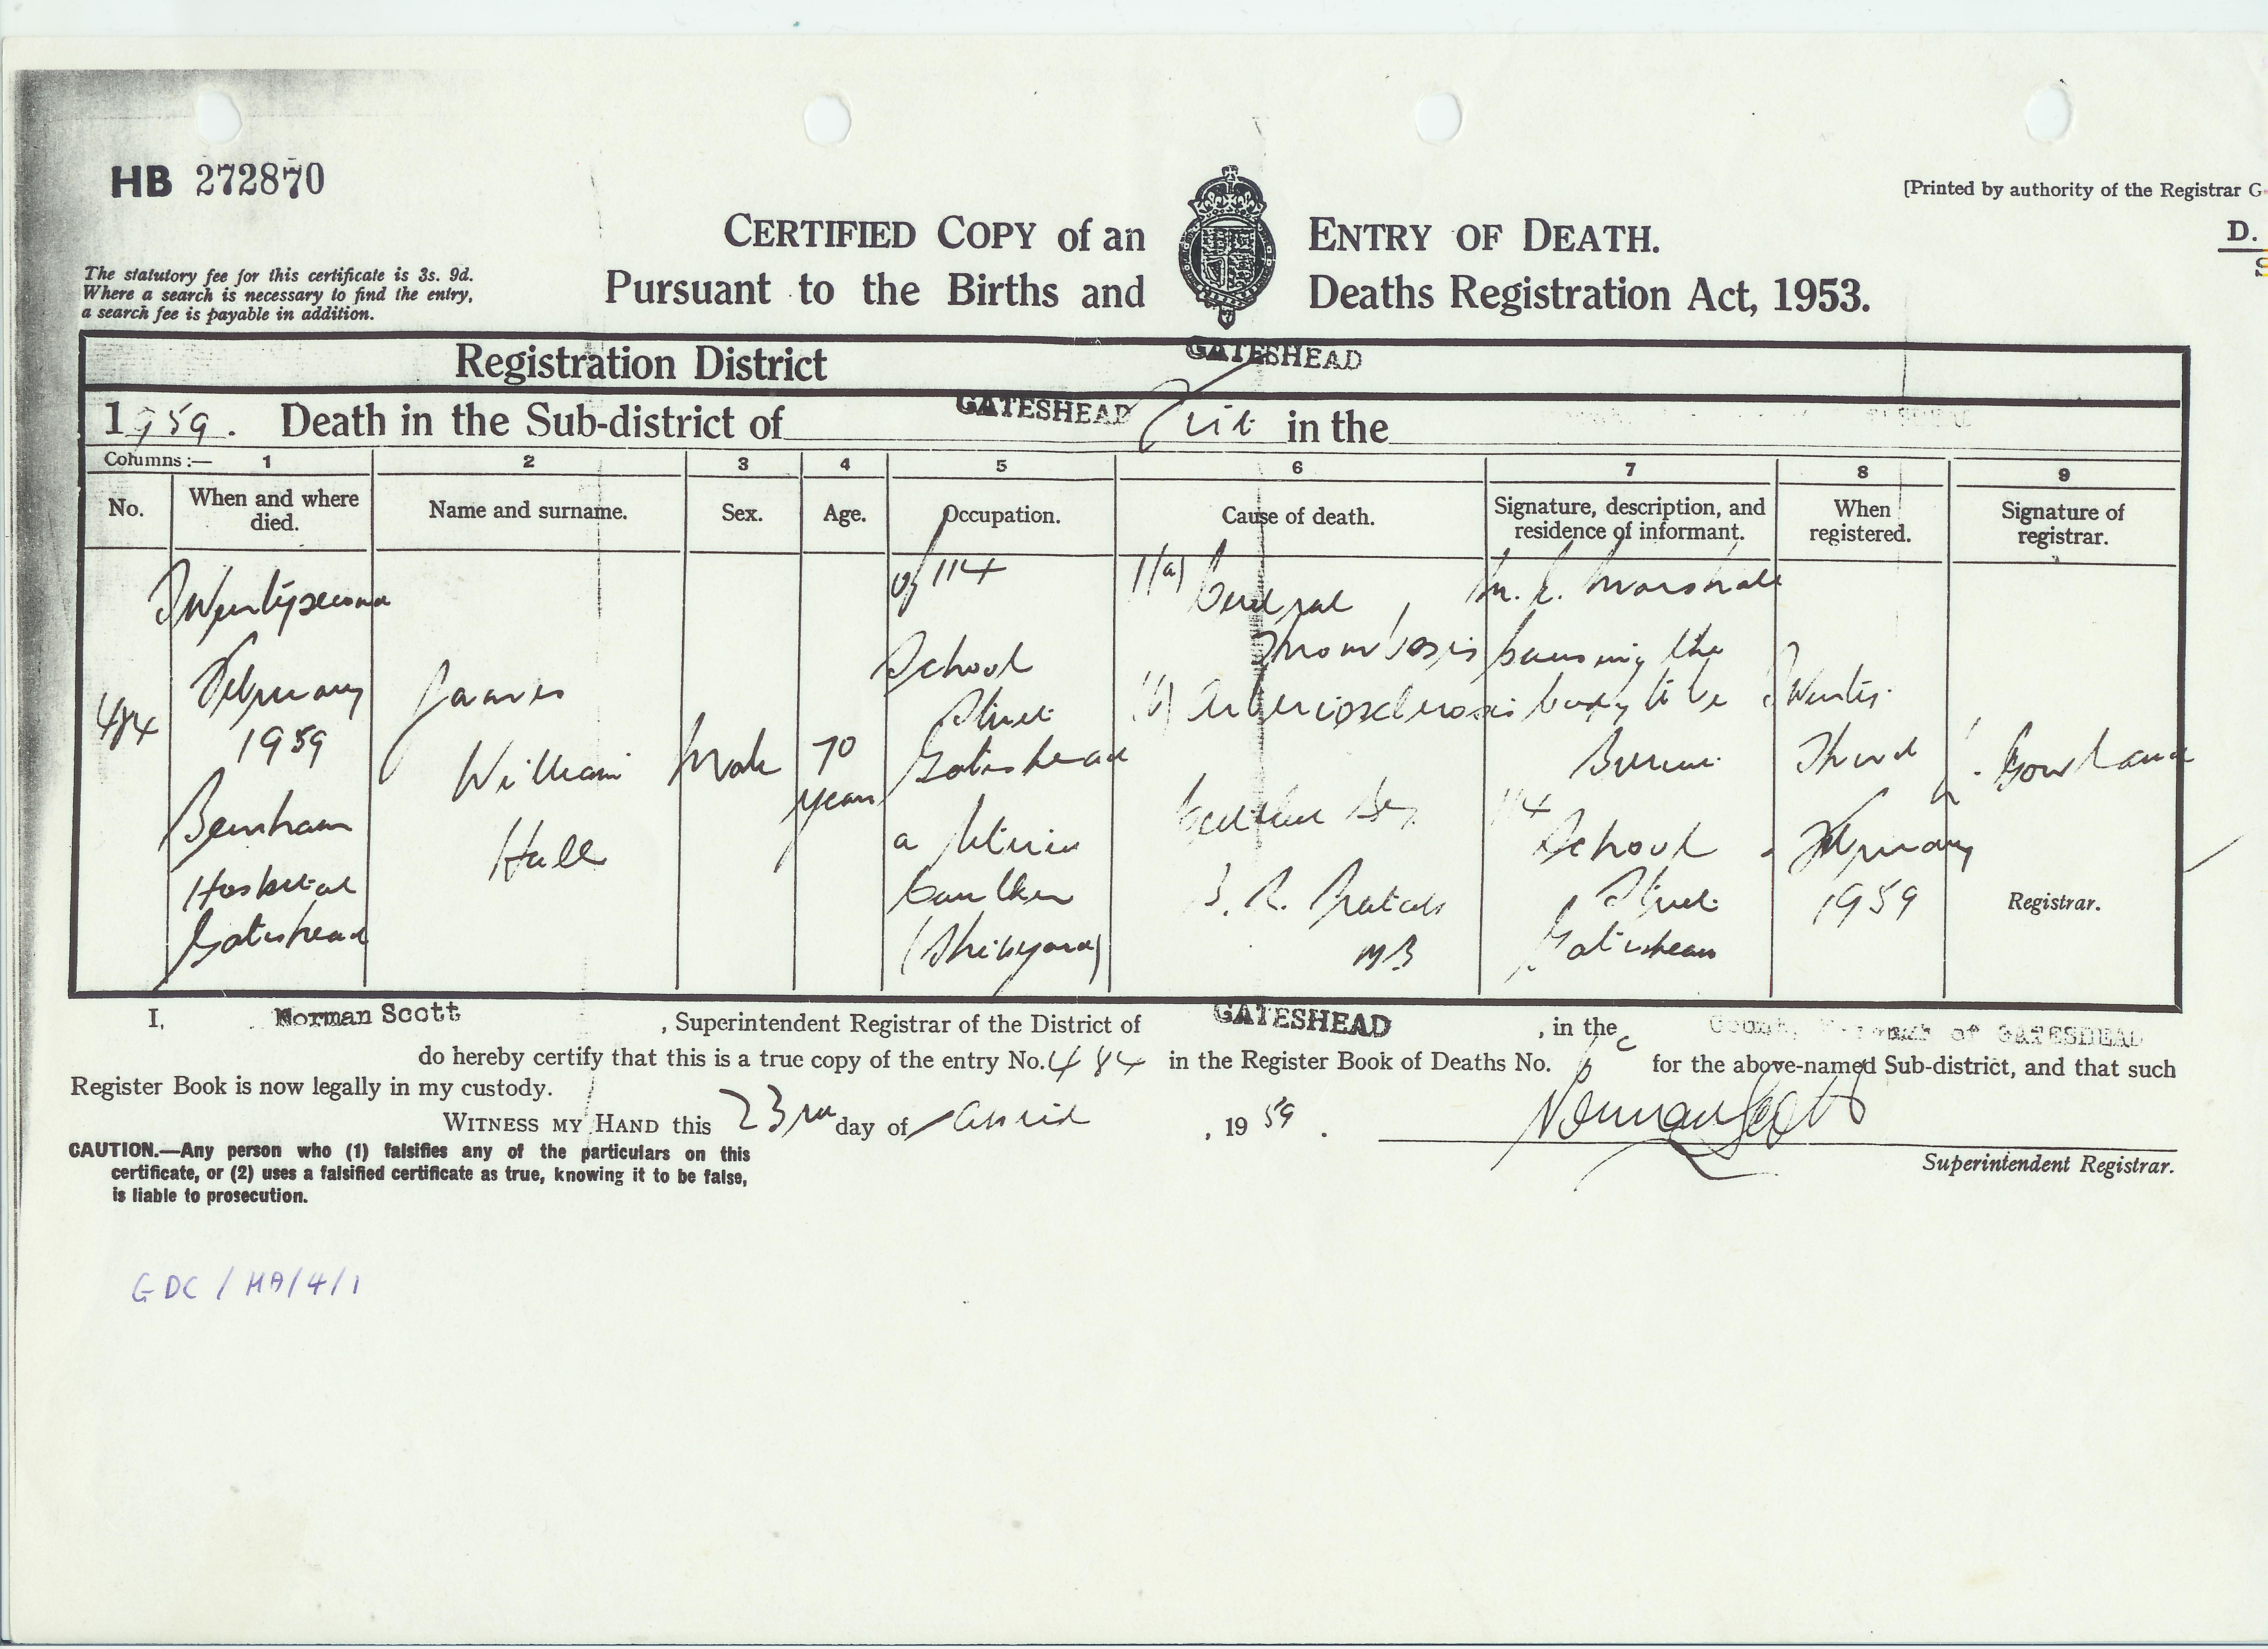 HB 272870
[Printed by authority of the Registrar G
D.
S
CERTIFIED COPY of an ENTRY OF DEATH.
Pursuant to the Births and Deaths Registration Act, 1953.
The statutory fee for this certificate is 3s. 9d.
Where a search is necessary to find the entry,
a search fee is payable in addition.
Registration District GATESHEAD
1959. Death in the Sub-district of GATESHEAD in the
Columns:— 1 2 3 4 5 6 7 8 9
No.
When and where
died.
Name and surname.
Sex.
Age.
Occupation.
Cause of death.
Signature, description, and
residence of informant.
When
registered.
Signature of
registrar.
484
Twenty second
February
1959
Bensham
Hospital
Gateshead
James
William
Hall
Male
70
years
of 114
School
Street
Gateshead
a retired
Caulker
(Shipyard)
1(a) Cerebral
Thrombosis
(b) Arteriosclerosis
Certified by
MB
M. E. Marshall
Causing the
body to be
114
School
Street
Gateshead
Twenty
Third
February
1959
Gowland
Registrar.
I, Norman Scott, Superintendent Registrar of the District of GATESHEAD, in the County Borough of GATESHEAD
do hereby certify that this is a true copy of the entry No. 484 in the Register Book of Deaths No. for the above-named Sub-district, and that such
Register Book is now legally in my custody.
WITNESS MY HAND this 23rd day of April, 1959.
Norman Scott
Superintendent Registrar.
CAUTION.—Any person who (1) falsifies any of the particulars on this
certificate, or (2) uses a falsified certificate as true, knowing it to be false,
is liable to prosecution.
GDC/HA/4/1